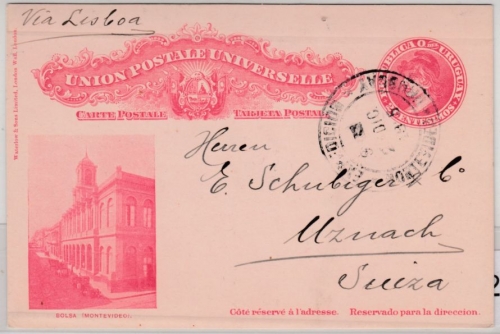 Via Lisboa
UNION POSTALE UNIVERSELLE
CARTE POSTALE TARJETA POSTAL
REPUBLICA O. URUGUAY
CENTESIMOS
Waterlow & Sons Limited, London Wall, London
Herren
E. Schubiger & Co
Uznach
Suiza
BOLSA (MONTEVIDEO).
Côté réservé à l'adresse. Reservado para la direccion.